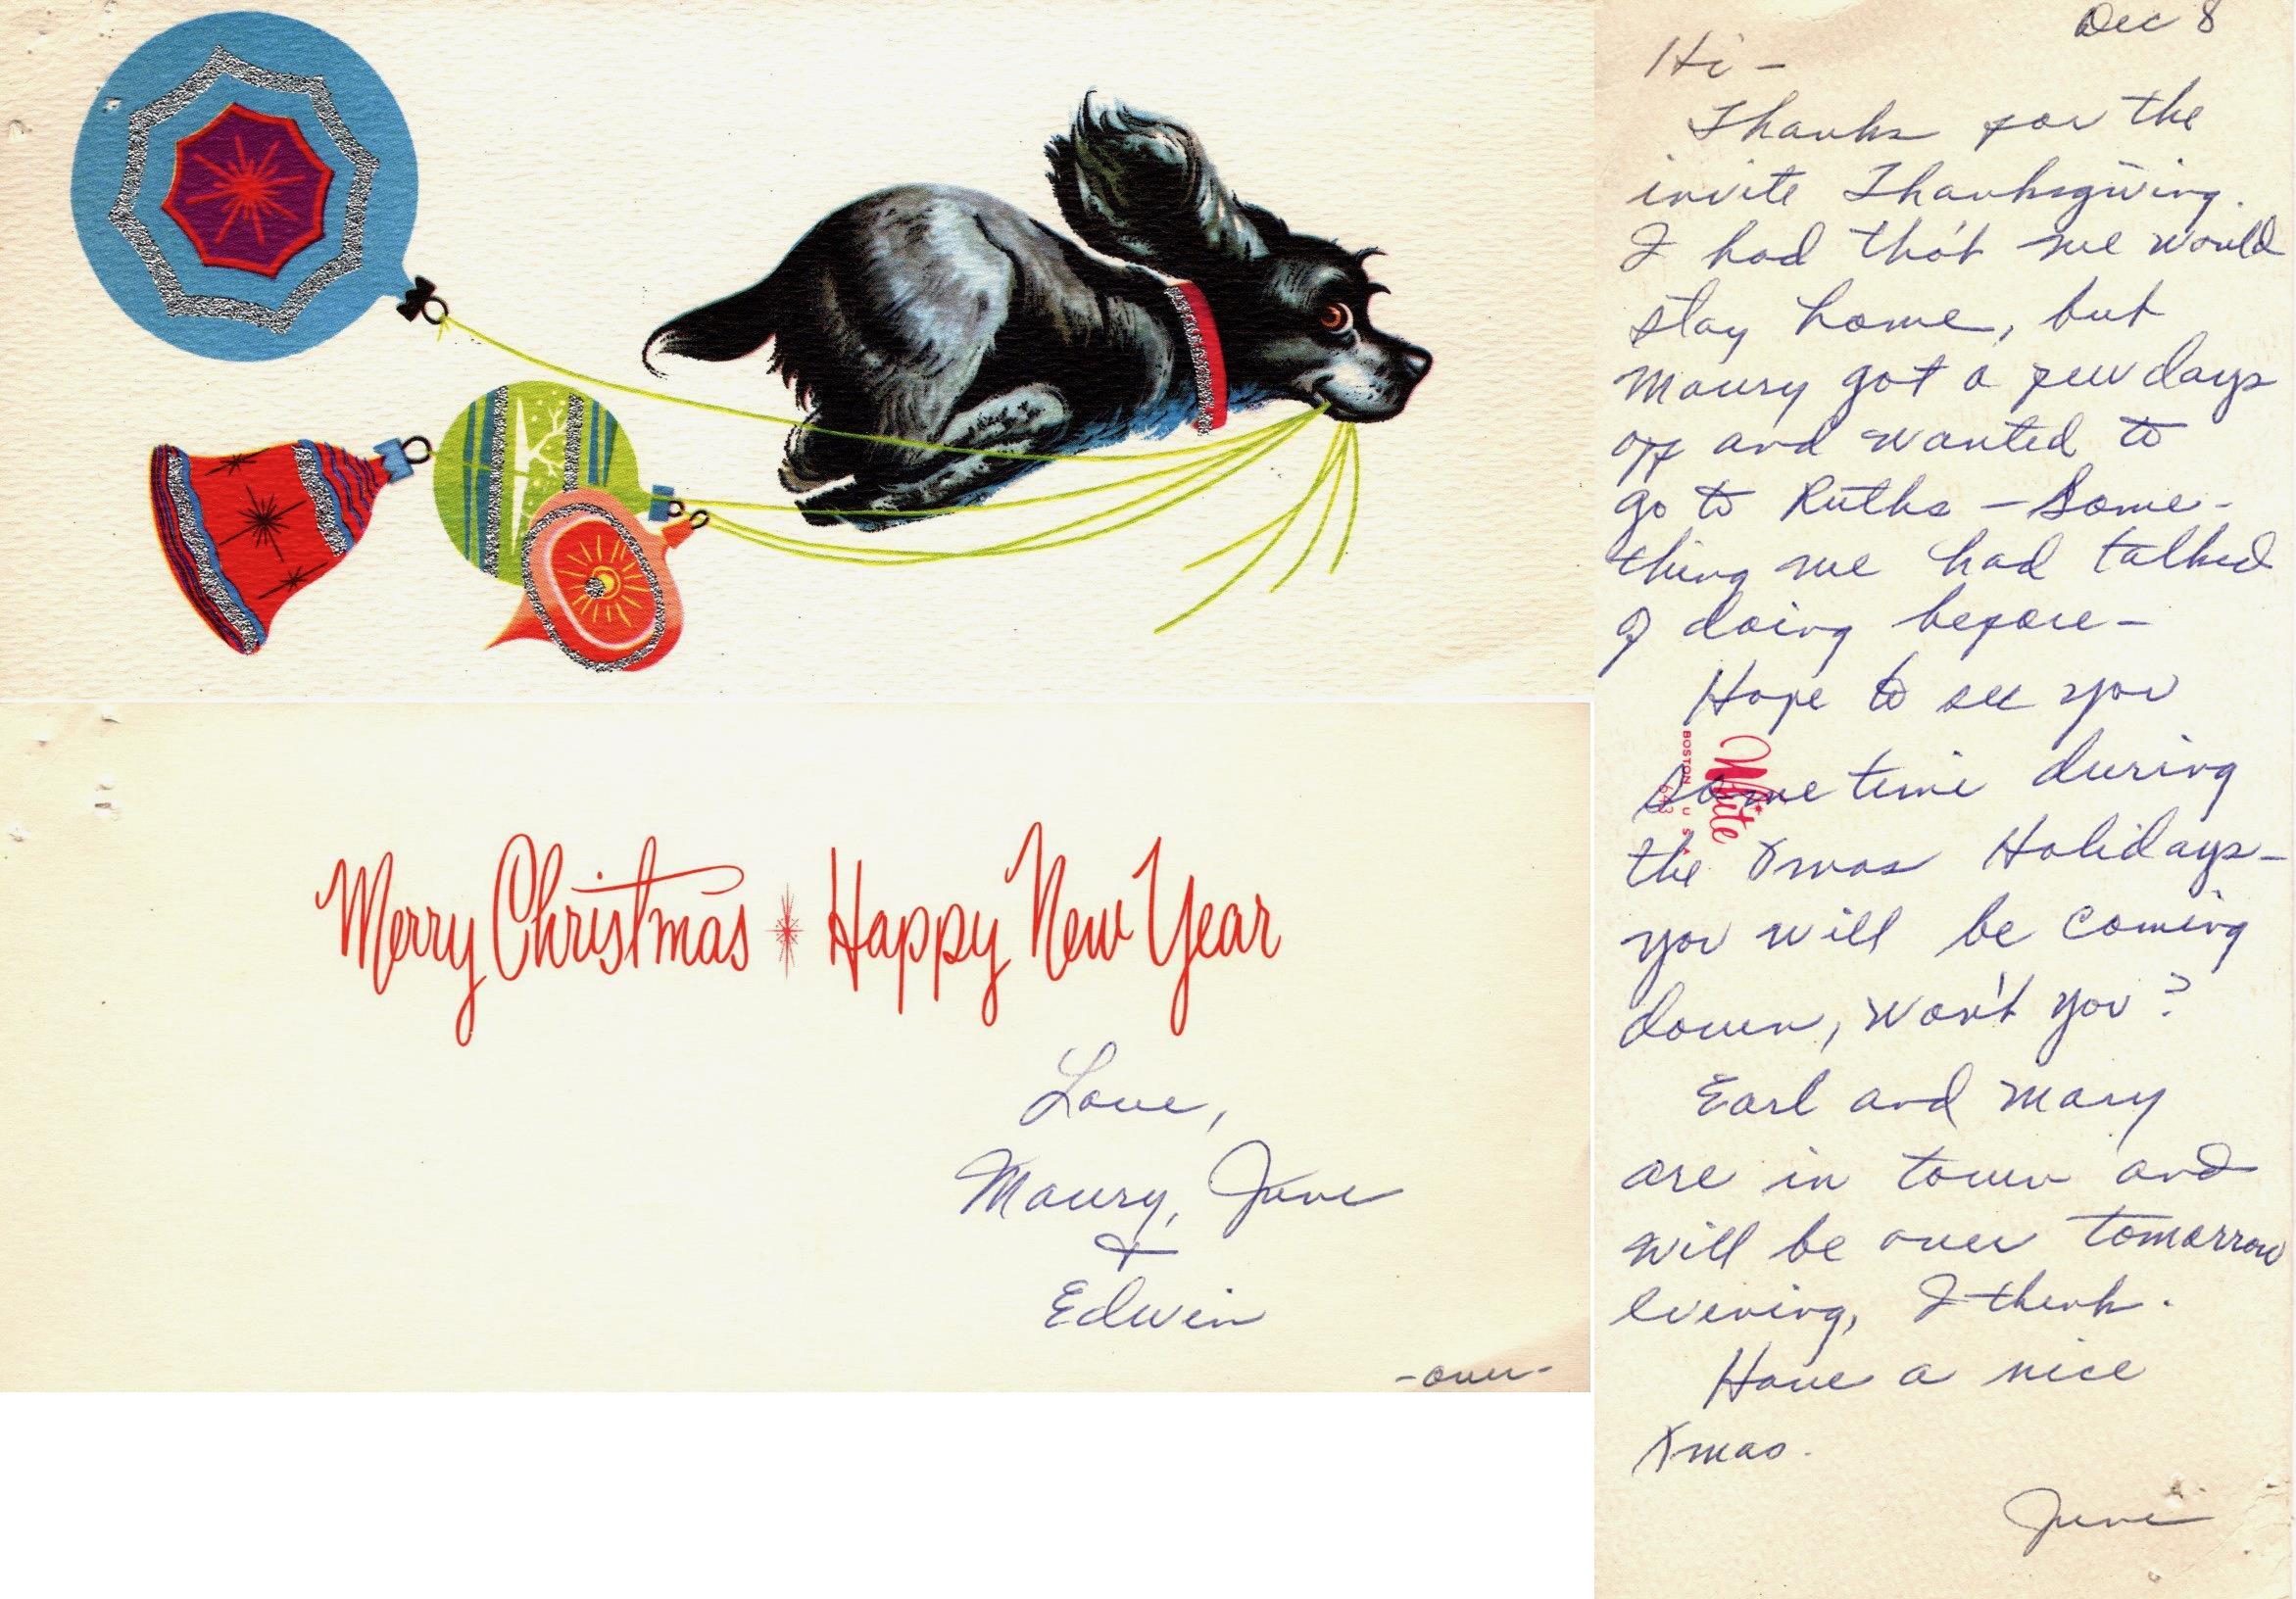 Merry Christmas * Happy New Year
Love,
Maury, June
+
Edwin
-over-
Dec 8
Hi -
Thanks for the
invite Thanksgiving.
I had tho't we would
stay home, but
Maury got a few days
off and wanted to
go to Ruths - Some-
thing we had talked
of doing before -
Hope to see you
sometime during
the Xmas Holidays -
you will be coming
down, won't you?
Earl and Mary
are in town and
will be over tomorrow
evening, I think.
Have a nice
Xmas.
June
White
BOSTON U S A